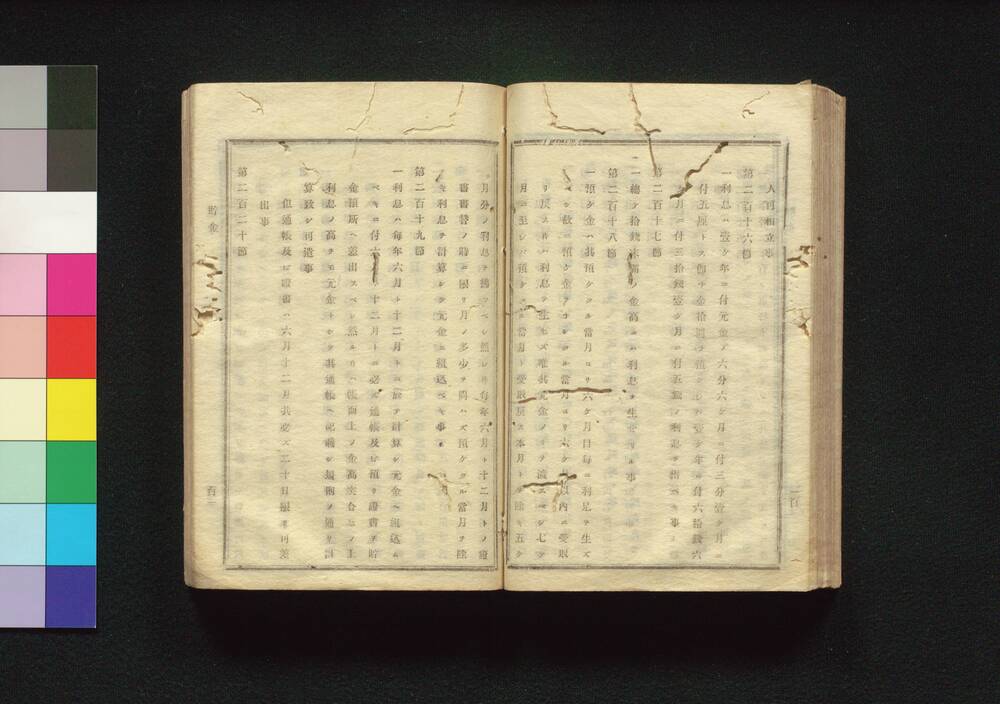 人可相立事
第二百十六節
一利息ハ壹ケ年ニ付元金ノ六分六ケ月ニ付三分壹ケ月ニ
付五厘トス即チ金拾圓ヲ預クレバ壹ケ年ニ付六拾錢六
ケ月ニ付三拾錢壹ケ月ニ付五錢ノ利息ヲ拂フベキ事
第二百十七節
一總テ拾錢未滿ノ金高ハ利息ヲ生ゼザル事
第二百十八節
一預ケ金ハ其預ケタル當月ヨリ六ケ月目毎ニ利足ヲ生ズ
ベシ故ニ預ケ金ヲナシタル當月ヨリ六ケ月以内ニ受取
リ戻スルハ利息ヲ生ゼズ唯其元金ノミヲ渡スベシ七ケ
月ニ至レバ預ケタル當月ト受取戻ス本月トヲ除キ五ケ
月分ノ利息ヲ拂フベシ然レ𪜈毎年六月ト十二月トノ證
書書替ノ時ニ限リ月ノ多少ヲ問ハズ預ケタル當月ヲ除
キ利息ヲ計算シテ元金ニ組込ベキ事
第二百十九節
一利息ハ毎年六月ト十二月トニ於テ計算シ元金ヘ組込ム
ベキニ付六月ト十二月トニ必ズ通帳及ビ預リ證書ヲ貯
金預所ヘ差出スベシ然ルトキハ帳面上ノ金高突合セノ上
利息ノ高ヲモ元金トシテ其通帳ヘ記載シ規則ノ通リ計
算致シ可遣事
但通帳及ビ證書ハ六月十二月共必ズ二十日限リ可差
出事
第二百二十節
貯金
百二